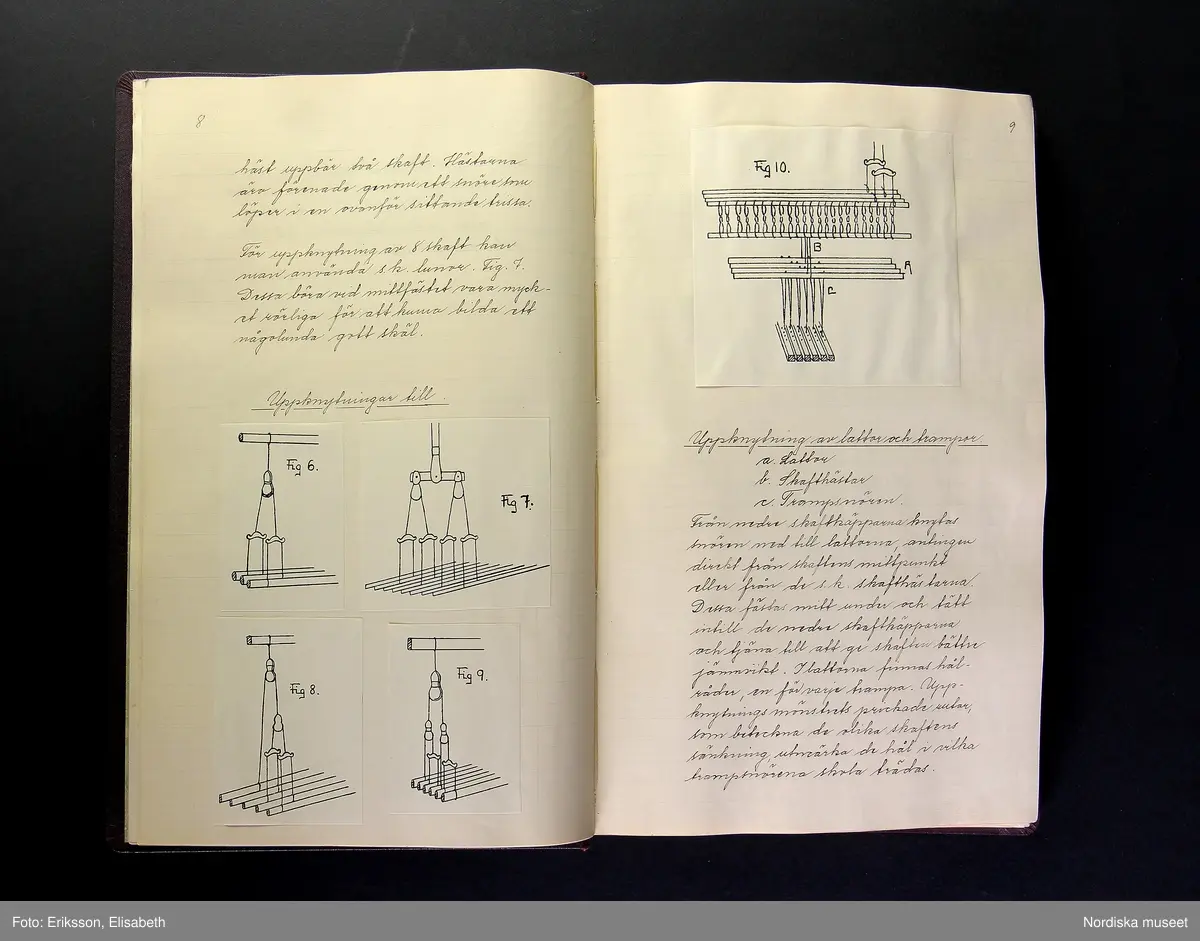 8
häst uppbär två skaft. Hästarna
äro förenade genom ett snöre som
löper i en ovanför sittande trissa.
För uppknytning av 8 skaft kan
man använda s.k. lunor. Fig. 7.
Dessa böra vid mittfästet vara myck-
et rörliga för att kunna bilda ett
någolunda gott skäl.
Uppknytningar till.
Fig 6.
Fig 7.
Fig 8.
Fig 9.
9
Fig 10.
B
A
C
Uppknytning av lattor och trampor.
a. Lattor
b. Skafthästar
c. Trampsnören.
Från nedre skaftkäpparna knytas
snören ned till lattorna, antingen
direkt från skaftens mittpunkt
eller från de s.k. skafthästarna.
Dessa fästas mitt under och tätt
intill de nedre skaftkäpparna
och tjäna till att ge skaften bättre
jämnvikt. I lattorna finnas hål-
räder, en för varje trampa. Upp-
knytnings mönstrets prickade rutor,
som beteckna de olika skaftens
sänkning, utmärka de hål i vilka
trampsnörena skola trädas.
Foto: Eriksson, Elisabeth
Nordiska museet